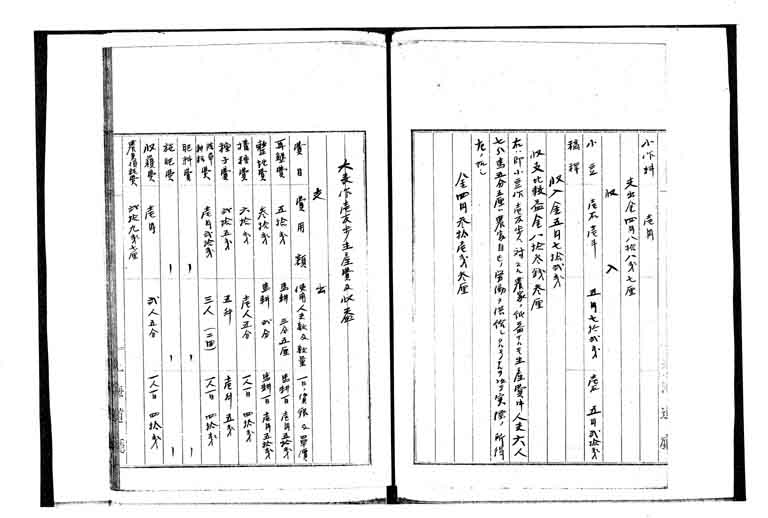 小作料 壱円
支出金四円八拾八銭七厘
収入
小豆 壱石壱斗 五円七拾弐銭 石 五円弐拾銭
稿稈
収入金五円七拾弐銭
収支比較益金八拾参銭参厘
右ハ即小豆作壱反歩ニ対スル農家ノ収益ニシテ生産費中人夫六人
七分馬五分五厘ハ農家自己ノ労働ヲ供給シ
左ノ如シ
金四円参拾壱銭参厘
大麦作壱反歩生産費及収益
支出
費目 費用額 使用人夫数及数量 一日ノ賃銀又単価
耕鋤費 五拾銭 馬耕 三分五厘 馬耕一日 壱円五拾銭
整地費 参拾銭 馬耕 弐分 馬耕一日 壱円五拾銭
播種費 六拾銭 壱人五分 一人一日 四拾銭
種子費 弐拾五銭 五升 壱升 五銭
壱円弐拾銭 三人(二回) 一人一日 四拾銭
肥料費
施肥費
収穫費 壱円 弐人五分 一人一日 四拾銭
農具損耗費 弐拾九銭七厘